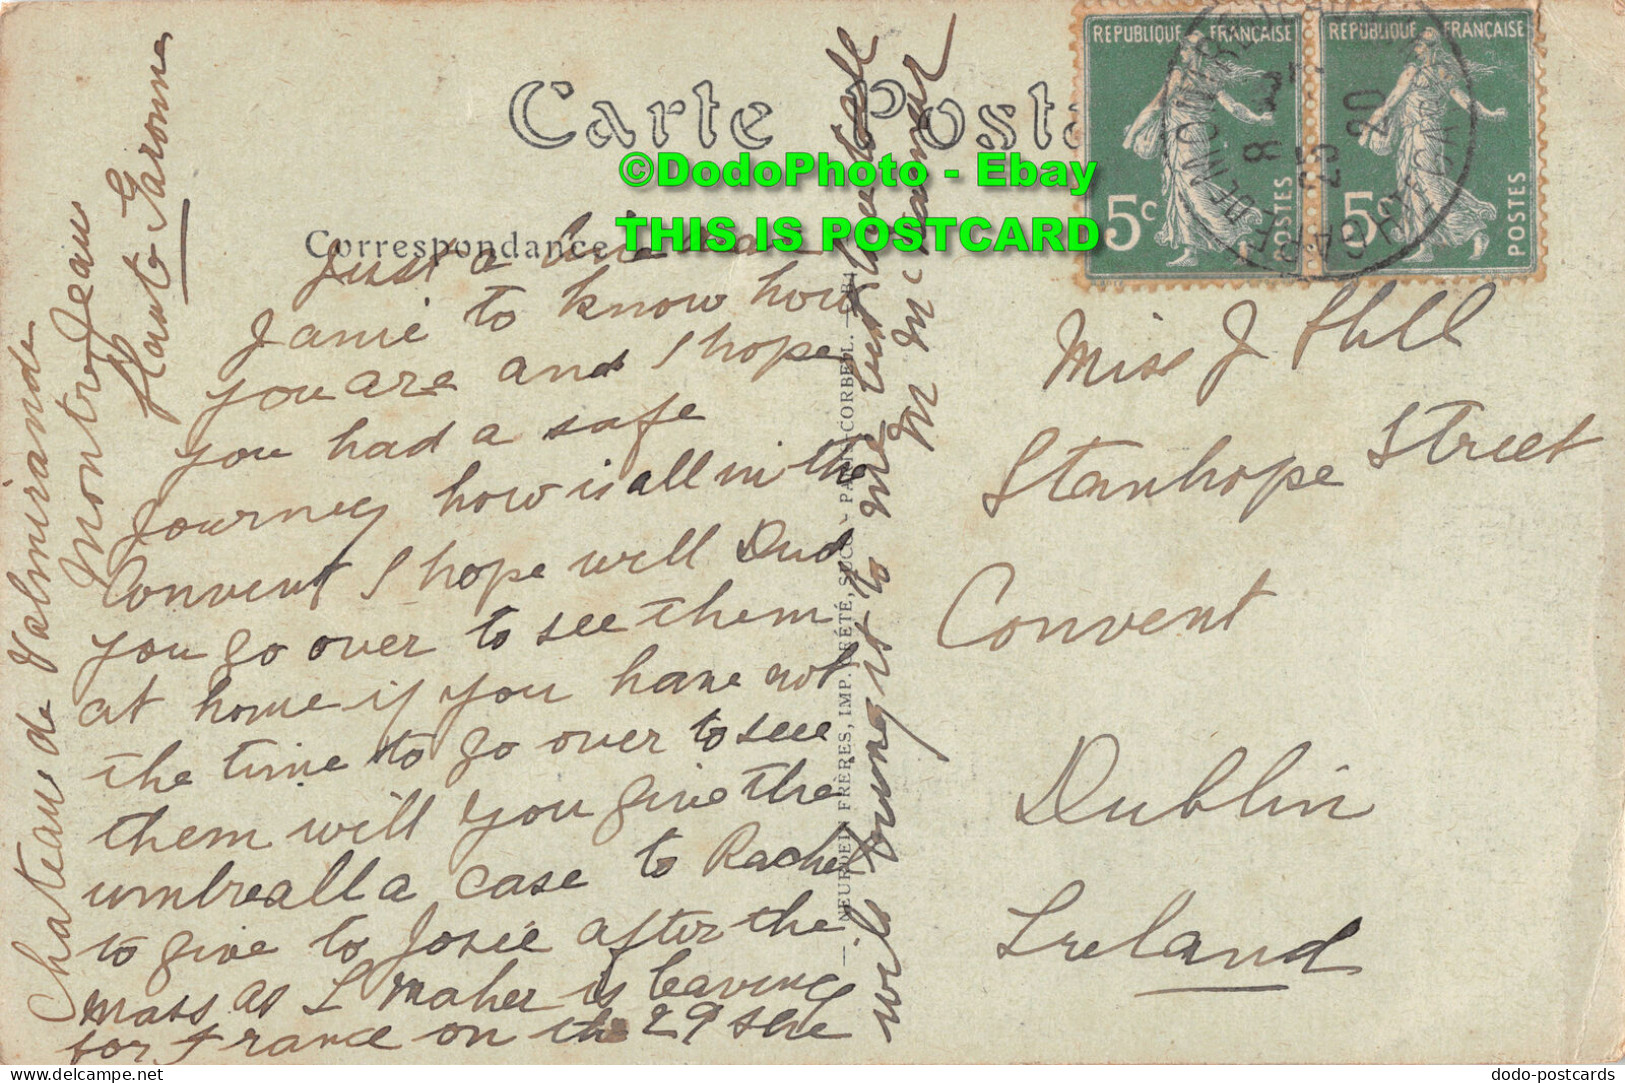 Carte Posta
©DodoPhoto - Ebay
THIS IS POSTCARD
Correspondance
Just a line dear
Jamie to know how
you are and I hope
you had a safe
Journey how is all in the
Convent I hope well Did
you go over to see them
at home if you have not
the time to go over to see
them will you give the
umbrealla case to Rachel
to give to Josie after the
mass as L Maher is leaving
for France on the 29 she
will bring it to me best love
M Mc
Chateau de Valmirande
Montrejeau
Haute Garonne
NEURDEIN FRÈRES, IMP. CRÉTÉ, SUCC. - PARIS, CORBEIL.
REPUBLIQUE FRANÇAISE
5c
POSTES
REPUBLIQUE FRANÇAISE
5c
POSTES
Miss J Hill
Stanhope Street
Convent
Dublin
Ireland
dodo-postcards
delcampe.net